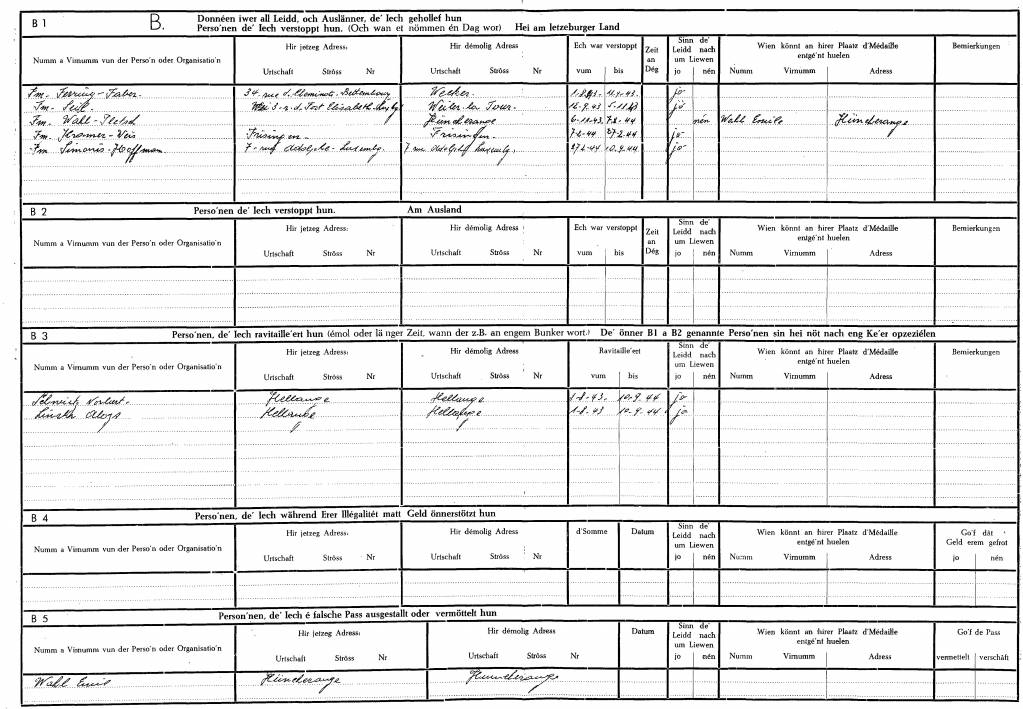 B 1 B. Donnéen iwer all Leidd, och Auslänner, de' Iech gehollef hun
Perso'nen de' Iech verstoppt hun. (Och wan et nömmen én Dag wor) Hei am letzeburger Land
Numm a Virnumm vun der Perso'n oder Organisatio'n Hir jetzeg Adress: Urtschaft Ströss Nr Hir démolig Adress Urtschaft Ströss Nr Ech war verstoppt vum bis Zeit an Dég Sinn de' Leidd nach um Liewen jo nén Wien könnt an hirer Plaatz d'Médaille entgé'nt huelen Numm Virnumm Adress Bemierkungen
Fm. Ferring-Faber 34, rue d. Bettembourg Wecker 11.9.43. jo
Fm. Seil r. d. Fort Elisabeth Weiler-la Tour 16.9.43 5.11.43 jo
Fm. Wahl-Pletsch Hüncherange 6-11-43, 7.2.44 nén Wahl Emile Hüncherange
Fm. Kramer-Weis Frisingen Frisingen 7-2-44 27.2.44 jo
Fm. Simonis-Hoffman 7 rue Adolphe luxembg. 7 rue Adolphe luxembg. 27.2.44 10.9.44 jo
B 2 Perso'nen de' Iech verstoppt hun. Am Ausland
Numm a Virnumm vun der Perso'n oder Organisatio'n Hir jetzeg Adress: Urtschaft Ströss Nr Hir démolig Adress Urtschaft Ströss Nr Ech war verstoppt vum bis Zeit an Dég Sinn de' Leidd nach um Liewen jo nén Wien könnt an hirer Plaatz d'Médaille entgé'nt huelen Numm Virnumm Adress Bemierkungen
B 3 Perso'nen, de' Iech ravitaille'ert hun (émol oder länger Zeit, wann der z.B. an engem Bunker wort.) De' önner B1 a B2 genannte Perso'nen sin hei nöt nach eng Ke'er opzeziélen
Numm a Virnumm vun der Perso'n oder Organisatio'n Hir jetzeg Adress: Urtschaft Ströss Nr Hir démolig Adress Urtschaft Ströss Nr Ravitaille'ert vum bis Sinn de' Leidd nach um Liewen jo nén Wien könnt an hirer Plaatz d'Médaille entgé'nt huelen Numm Virnumm Adress Bemierkungen
Norbert Hellange Hellange 1-8-43. 10.9.44 jo
Aloys Hellange Hellange 1-8-43 10.9.44 jo
B 4 Perso'nen, de' Iech während Erer Illégalitét matt Geld önnerstötzt hun
Numm a Virnumm vun der Perso'n oder Organisatio'n Hir jetzeg Adress: Urtschaft Ströss Nr Hir démolig Adress Urtschaft Ströss Nr d'Somme Datum Sinn de' Leidd nach um Liewen jo nén Wien könnt an hirer Plaatz d'Médaille entgé'nt huelen Numm Virnumm Adress Go'f dât Geld erem gefrot jo nén
B 5 Person'nen, de' Iech é falsche Pass ausgestallt oder vermöttelt hun
Numm a Virnumm vun der Perso'n oder Organisatio'n Hir jetzeg Adress: Urtschaft Ströss Nr Hir démolig Adress Urtschaft Ströss Nr Datum Sinn de' Leidd nach um Liewen jo nén Wien könnt an hirer Plaatz d'Médaille entgé'nt huelen Numm Virnumm Adress Go'f de Pass vermettelt verschäft
Wahl Emil Hüncherange Hüncherange